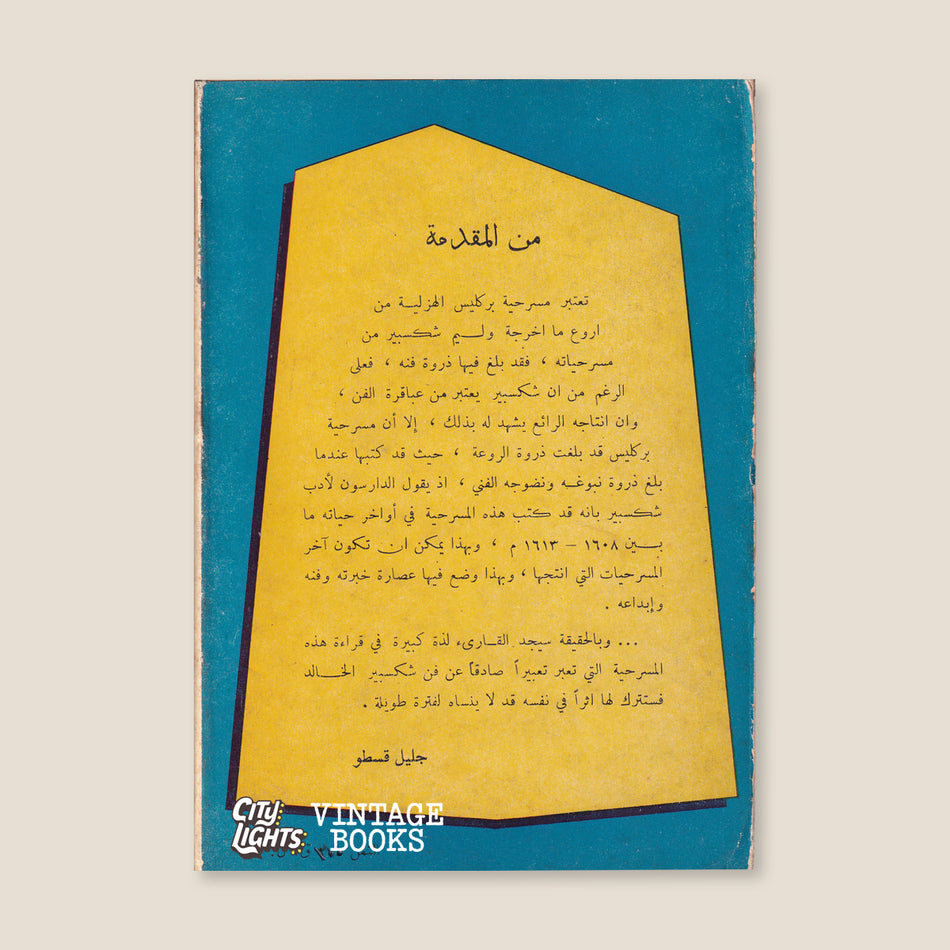 من المقدمة
تعتبر مسرحية بركليس الهزليـة من
اروع ما اخرجة وليم شكسبير من
مسرحياته ، فقد بلغ فيها ذروة فنه ، فعلى
الرغم من ان شكسبير يعتبر من عباقرة الفن ،
وان انتاجه الرائع يشهد له بذلك ، إلا أن مسرحية
بركليس قد بلغت ذروة الروعة ، حيث قد كتبها عندما
بلغ ذروة نبوغـه ونضوجه الفني ، اذ يقول الدارسون لأدب
شكسبير بانه قد كتب هذه المسرحية في أواخر حياته ما
بـين ١٦٠٨ – ١٦١٣ م ، وبهذا يمكن ان تكون آخر
المسرحيات التي انتجها ، وبهذا وضع فيها عصارة خبرته وفنه
وإبداعه .
... وبالحقيقة سيجد القـارىء لذة كبيرة في قراءة هذه
المسرحية التي تعبر تعبيراً صادقاً عن فن شكسبير الخـالد
فستترك لها اثراً في نفسه قد لا ينساه لفترة طويلة .
جليل قسطو
CITY LIGHTS
VINTAGE
BOOKS